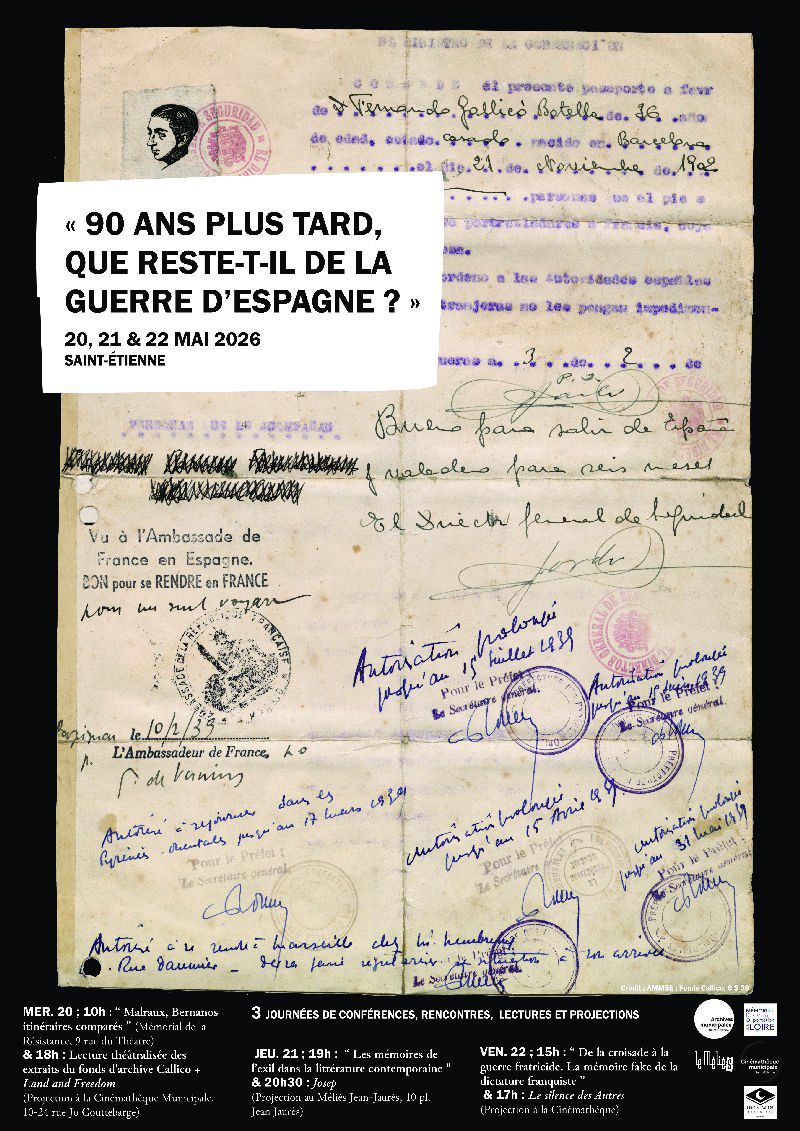 EL MINISTRO DE LA GOBERNACION
CONCEDE el presente pasaporte a favr
de D Fernando Gallicò Botella de 36 año
de edad, estado casado nacido en Barcelona
el dia 21 de Noviembre de 1902
SEGURIDAD
personas que al pie s
« 90 ANS PLUS TARD,
QUE RESTE-T-IL DE LA
GUERRE D’ESPAGNE ? »
20, 21 & 22 MAI 2026
SAINT-ÉTIENNE
a Francia,
ordeno a las Autoridades españolas
tranjeras no les pongan impedimen-
ueras a 3 de 2 de
P.D.
PERSONAS QUE LE ACOMPAÑAN
Bueno para salir de España
y valedero para seis meses
El Director general de Seguridad
Vu à l'Ambassade de
France en Espagne.
BON pour se RENDRE en FRANCE
pour un seul voyage
AMBASSADE DE LA REPUBLIQUE FRANÇAISE
Perpignan le 10/2/39
L'Ambassadeur de France,
Autorisation prolongée
jusqu'au 15 Juillet 1939
Pour le Préfet
Le Secrétaire général.
Autorisation prolongée
jusqu'au 15 Juin 1939
Pour le Préfet :
Le Secrétaire général.
Autorisé à séjourner dans les
Pyrénées-orientales jusqu'au 17 mars 1939
Pour le Préfet :
Le Secrétaire général.
Autorisation prolongée
jusqu'au 15 Avril 1939
Pour le Préfet :
Le Secrétaire général.
Autorisation prolongée
jusqu'au 31 Mai 1939
Pour le Préfet :
Le Secrétaire général.
Autorisé à se rendre Marseille chez M.
Rue Daumier - devra faire régulariser sa situation à son arrivée
Le Secrétaire général.
Crédit : AMMSE ; Fonds Callico, 6 S 39
MER. 20 ; 10h : “ Malraux, Bernanos
itinéraires comparés ” (Mémorial de la
Résistance, 9 rue du Théâtre)
& 18h : Lecture théâtralisée des
extraits du fonds d'archive Callico +
Land and Freedom
(Projection à la Cinémathèque Municipale,
10-24 rue Jo Gouttebarge)
3 JOURNÉES DE CONFÉRENCES, RENCONTRES, LECTURES ET PROJECTIONS
JEU. 21 ; 19h : “ Les mémoires de
l'exil dans la littérature contemporaine "
& 20h30 : Josep
(Projection au Méliès Jean-Jaurès, 10 pl.
Jean Jaurès)
VEN. 22 ; 15h : “ De la croisade à la
guerre fratricide. La mémoire fake de la
dictature franquiste ”
& 17h : Le silence des Autres
(Projection à la Cinémathèque)
Archives
municipales
LOIRE
Cinémathèque
municipale